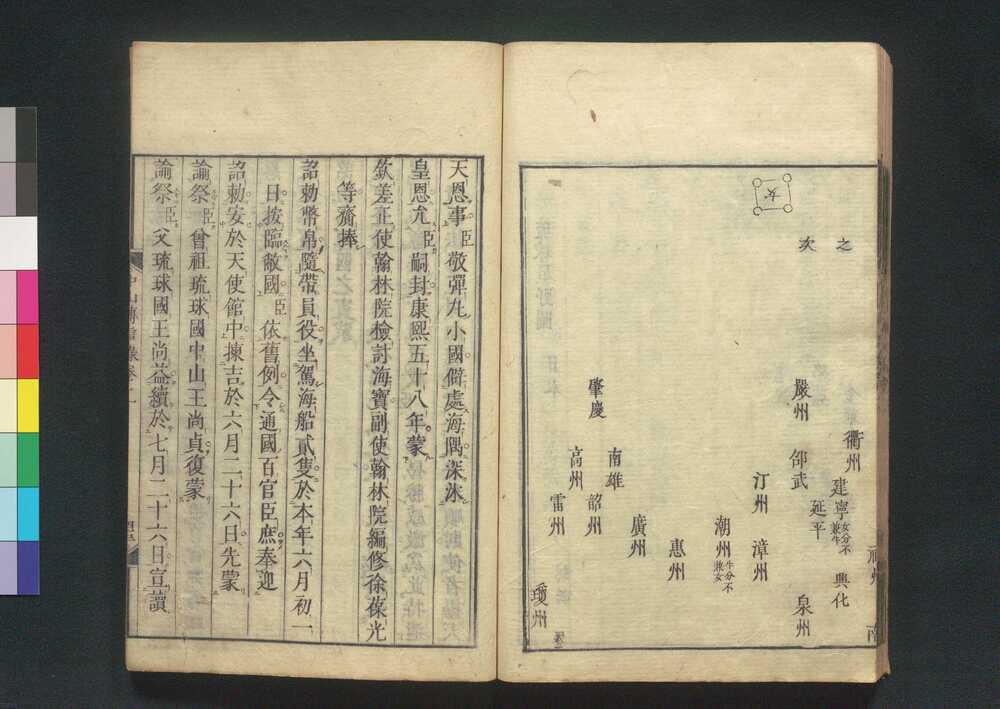 之
次
女
衢州
嚴州
建寧女分不兼牛
延平
邵武
興化
泉州
汀州
漳州
潮州牛分不兼女
惠州
廣州
南雄
韶州
肇慶
高州
雷州
瓊州
南
天恩事臣敬彈丸小國僻處海隅深沐
皇恩尤臣嗣封康熙五十八年蒙
欽差正使翰林院檢討海寶副使翰林院編修徐葆光
等齎捧
詔勅幣帛隨帶員役坐駕海船貳隻於本年六月初一
日按臨敝國臣依舊例令通國百官臣庶奉迎
詔勅安於天使館中揀吉於六月二十六日先蒙
諭祭臣曾祖琉球國中山王尚貞復蒙
諭祭臣父琉球國王尚益續於七月二十六日宣讀
中山傳信錄卷二